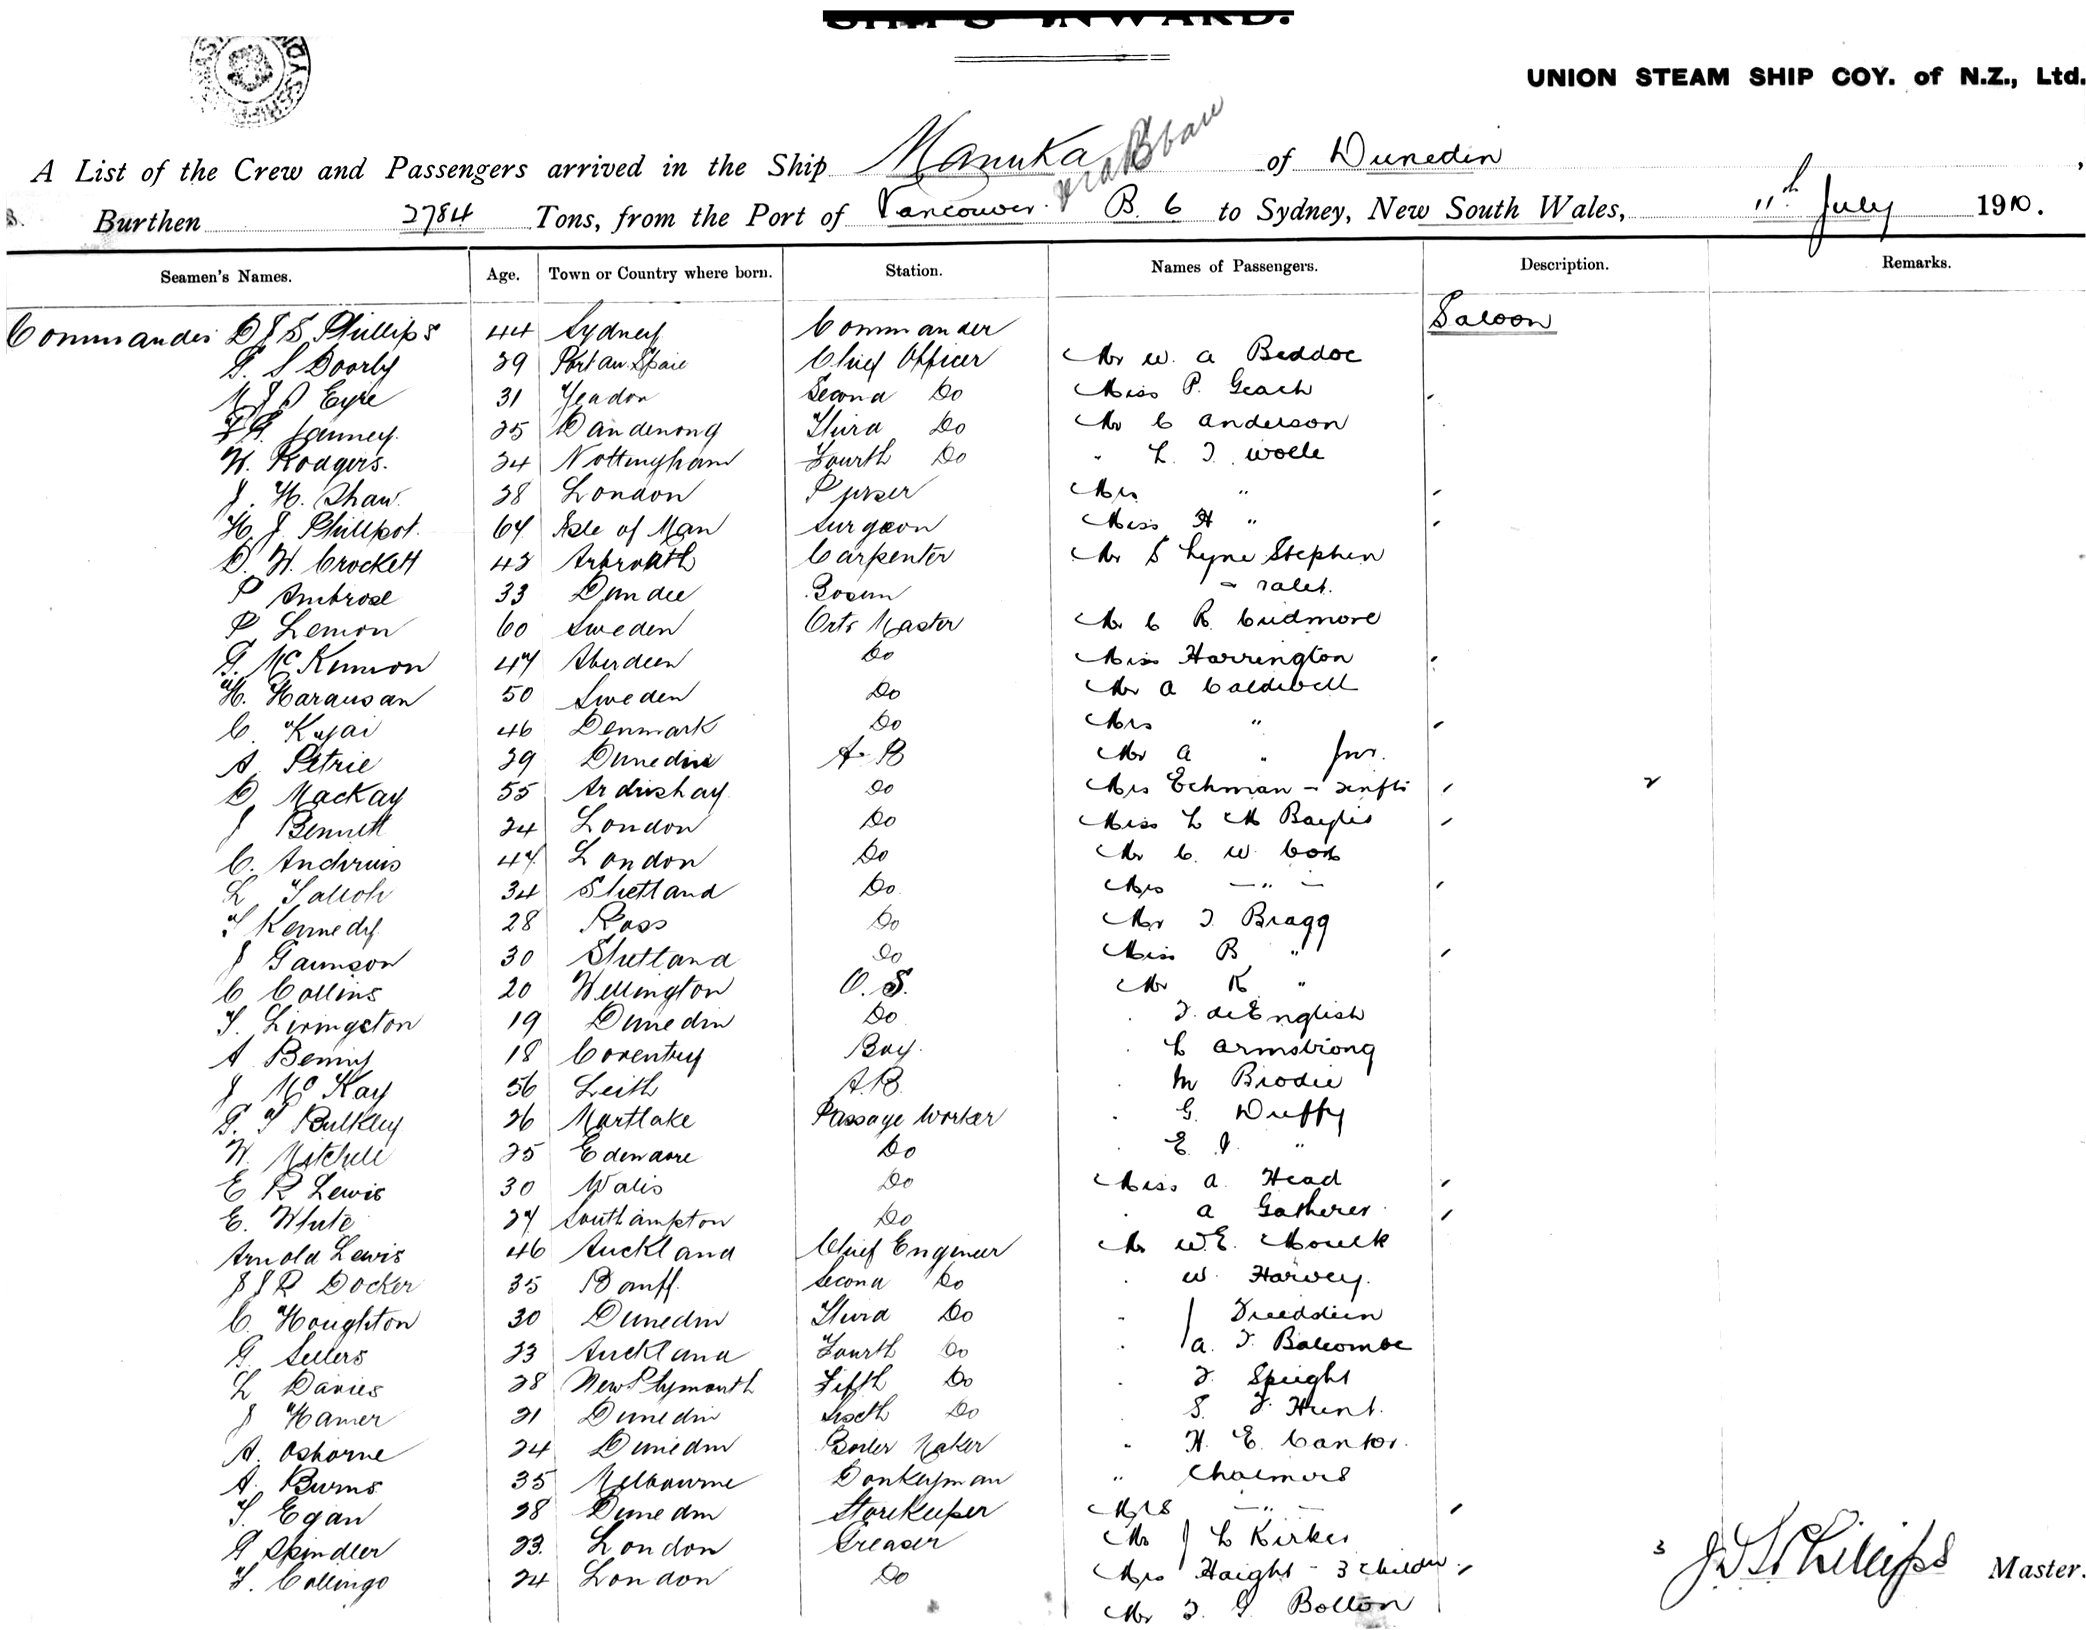 SHIPS INWARD.
UNION STEAM SHIP COY. of N.Z., Ltd.
A List of the Crew and Passengers arrived in the Ship Manuka of Dunedin,
Burthen 2784 Tons, from the Port of Vancouver B.C to Sydney, New South Wales, 11th July 1910.
Seamen's Names. Age. Town or Country where born. Station. Names of Passengers. Description. Remarks.
Saloon
Commander J D S Phillips 44 Sydney Commander
G. S Doorly 29 Port au Spain Chief Officer Mr W. A Beddoe
Eyre 31 Yeadon Second Do Miss P. Geach
25 Dandenong Third Do Mr C Anderson
W. Rodgers. 24 Nottingham Fourth Do " L. T. Wolle
J. H. Shaw. 28 London Purser Mrs "
H. J. Phillpot. 64 Isle of Man Surgeon Miss H "
D. W. Crockett 43 Arbroath Carpenter Mr S Lyne Stephen
P Ambrose 33 Dundee Bosun - valet.
P. Lemon 60 Sweden Qrtr Master Mr C R. Cudmore
G. McKinnon 47 Aberdeen Do Miss Harrington
H. 50 Sweden Do Mr A Caldwell
C. 46 Denmark Do Mrs "
A. Petrie 29 Dunedin A B Mr A " Jnr.
D. Mackay 55 Ardrishay Do Mrs Echman - 2 infts 2
J Bennett 24 London Do Miss L M Baylis
C. Andrews 47 London Do Mr C. W. Cook
L 34 Shetland Do Mrs - " -
T Kennedy 28 Ross Do Mr T Bragg
J Jamieson 30 Shetland Do Miss B "
C Collins 20 Wellington O. S. Mr K "
T. Livingston 19 Dunedin Do T. de English
A Benny 18 Coventry Boy. L Armstrong
J McKay 56 Leith A.B. M Brodie
G. T Bulkley 26 Mortlake Passage Worker G. Duffy
W. Mitchell 25 Do E. J. "
E R Lewis 30 Wales Do Miss A. Head
E. White 27 Southampton Do A Gatherer
Arnold Lewis 46 Auckland Chief Engineer Mr W.E.
J J R Docker 35 Banff. Second Do W. Harvey.
C. Houghton 30 Dunedin Third Do J
G. Sellers 23 Auckland Fourth Do A. T. Balcombe
L Davies 28 New Plymouth Fifth Do T. Speight
J Hamer 21 Dunedin Sixth Do S. T. Hunt.
A. Osborne 24 Dunedin Boiler Maker H. E. Cantor.
A. Burns 35 Melbourne Donkeyman " Chalmers
T. Egan 28 Dunedin Storekeeper Mrs - " -
G Spindler 23. London Greaser Mr J L Kirker
T. Collings 24 London Do Mrs Haight - 3 children 3
Mr T. G Bolton
J D S Phillips Master.